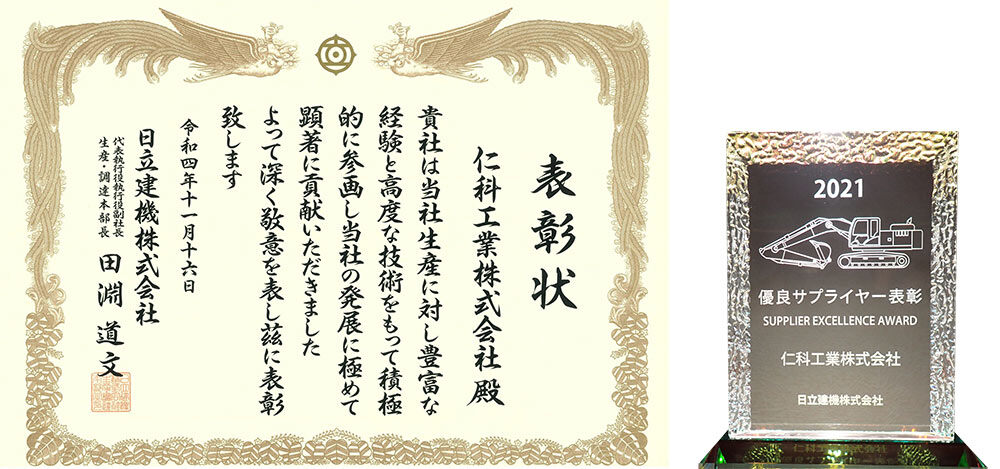 表彰状
仁科工業株式会社 殿
貴社は当社生産に対し豊富な
経験と高度な技術をもって積極
的に参画し当社の発展に極めて
顕著に貢献いただきました
よって深く敬意を表し茲に表彰
致します
令和四年十一月十六日
日立建機株式会社
代表執行役執行役副社長
生産・調達本部長
田淵道文
2021
優良サプライヤー表彰
SUPPLIER EXCELLENCE AWARD
仁科工業株式会社
日立建機株式会社